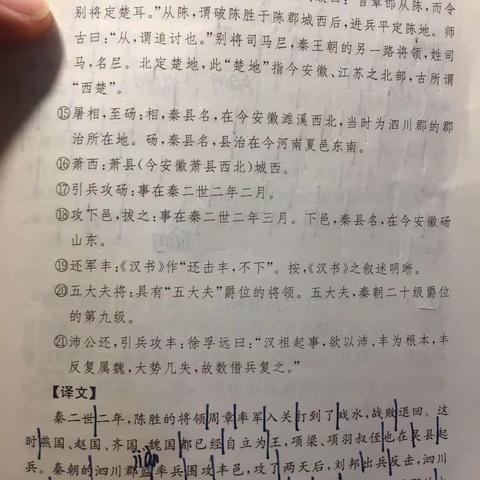 章邯从陈,而令
别将定楚耳。”从陈,谓破陈胜于陈郡城西后,进兵平定陈地。师
古曰:“从,谓追讨也。”别将司马𡰥,秦王朝的另一路将领,姓司
马,名𡰥。北定楚地,此“楚地”指今安徽、江苏之北部,古所谓
“西楚”。
⑮屠相,至砀:相,秦县名,在今安徽濉溪西北,当时为泗川郡的郡
治所在地。砀,秦县名,县治在今河南夏邑东南。
⑯萧西:萧县(今安徽萧县西北)城西。
⑰引兵攻砀:事在秦二世二年二月。
⑱攻下邑,拔之:事在秦二世二年三月。下邑,秦县名,在今安徽砀
山东。
⑲还军丰:《汉书》作“还击丰,不下”。按,《汉书》之叙述明晰。
⑳五大夫将:具有“五大夫”爵位的将领。五大夫,秦朝二十级爵位
的第九级。
㉑沛公还,引兵攻丰:徐孚远曰:“汉祖起事,欲以沛、丰为根本,丰
反复属魏,大势几失,故数借兵复之。”
【译文】
秦二世二年,陈胜的将领周章率军入关打到了戏水,战败退回。这
时燕国、赵国、齐国、魏国都已经自立为王,项梁、项羽叔侄也在吴县起
兵。秦朝的泗川郡监率兵围攻丰邑,攻了两天后,刘邦出兵反击,泗川
jiàn